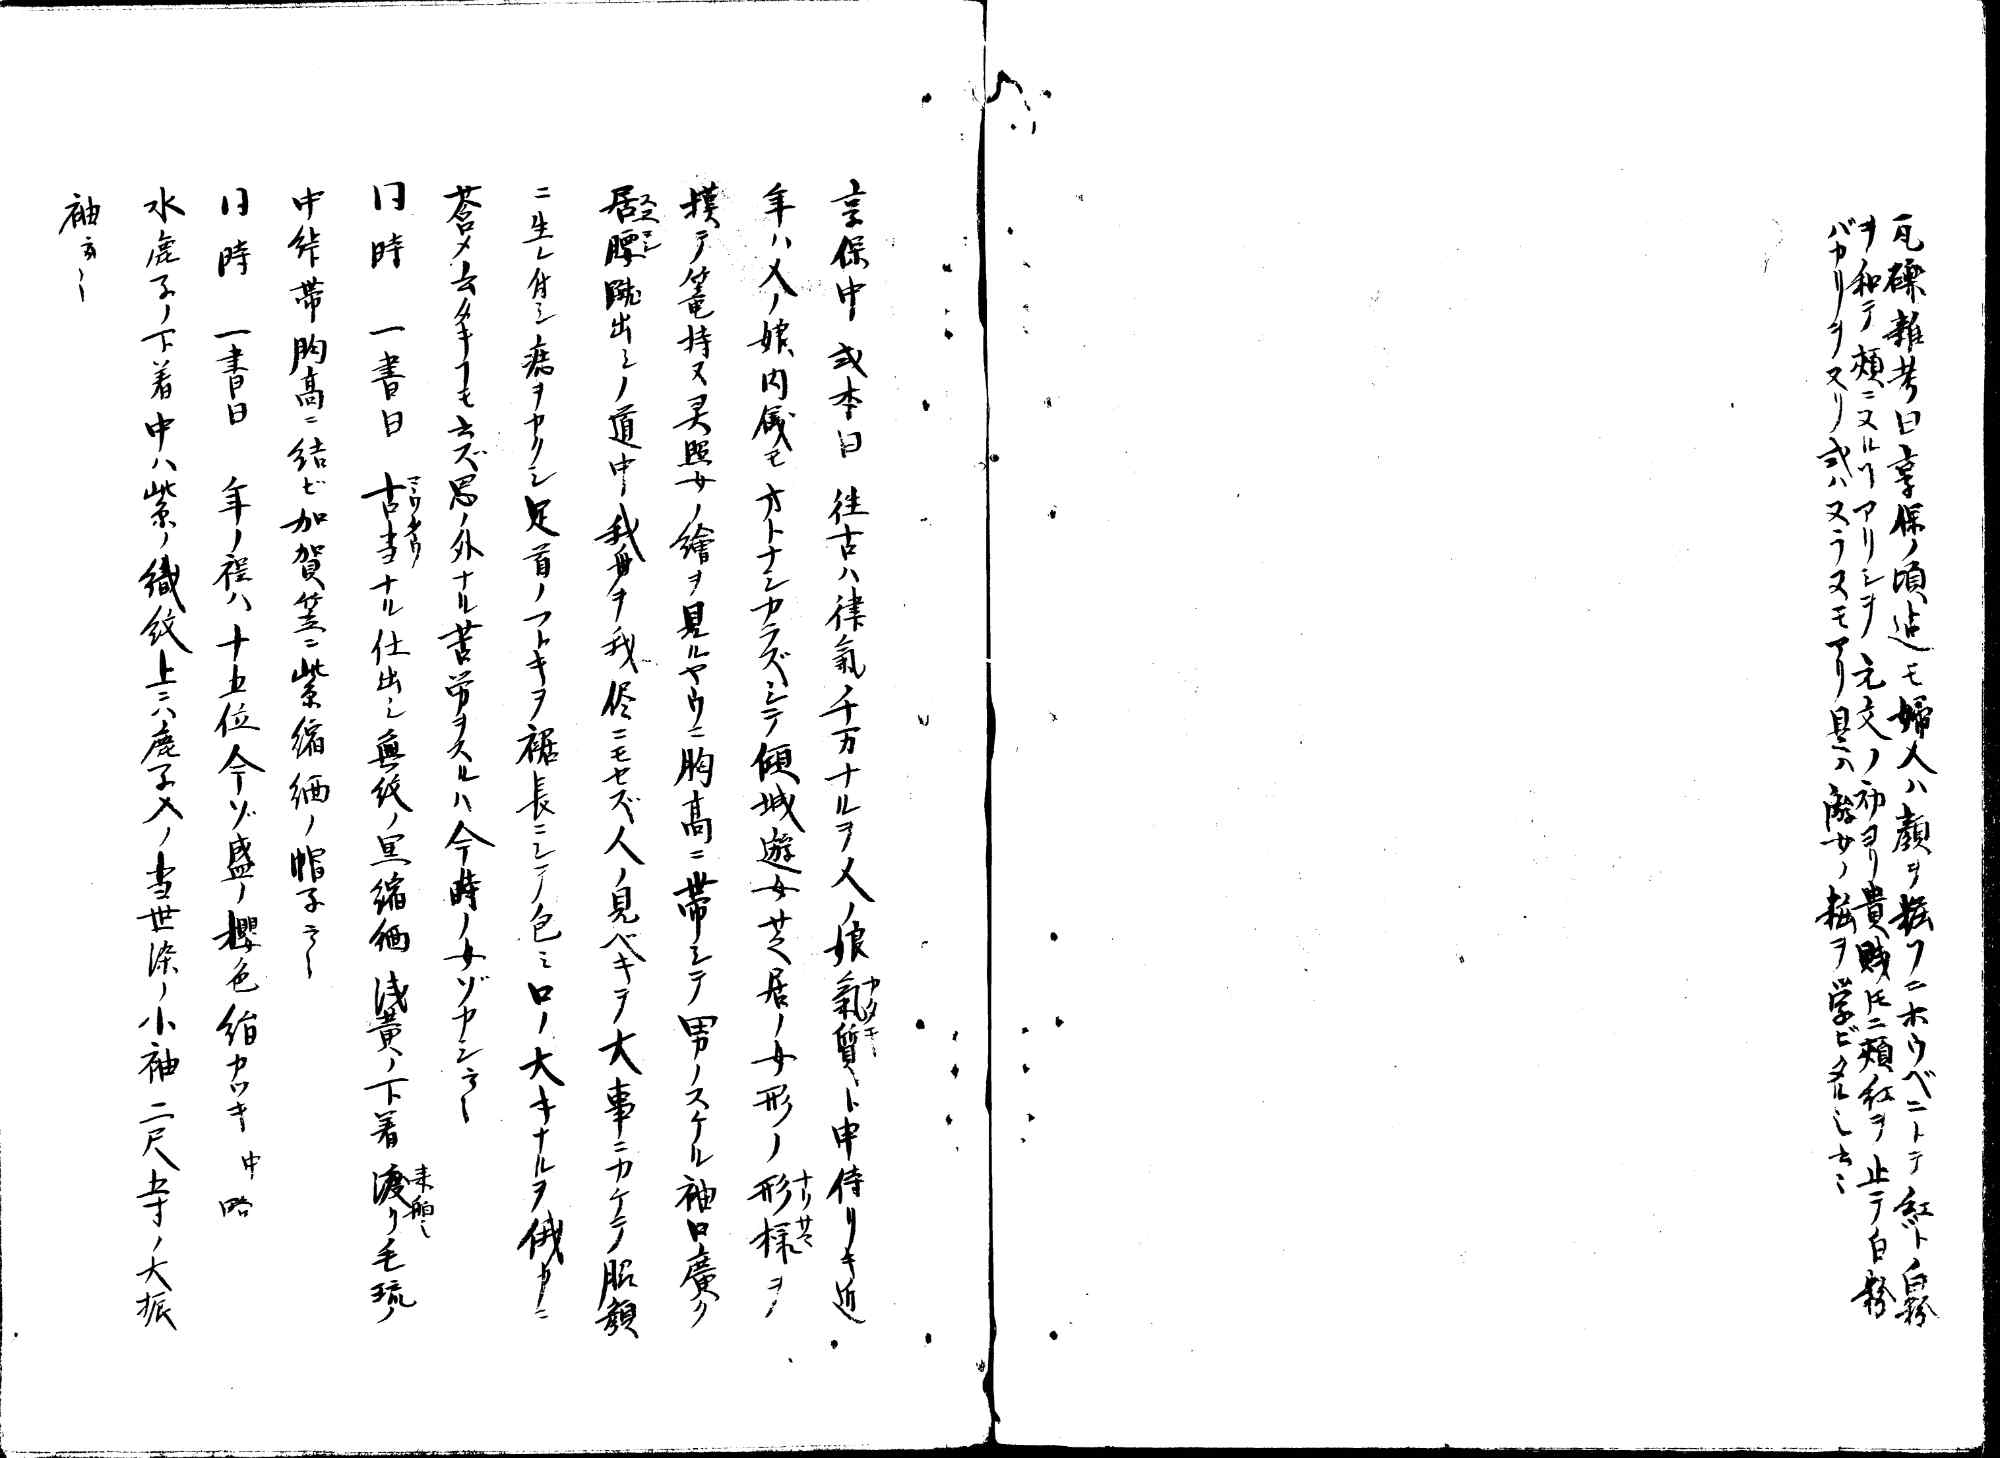 瓦礫雜考曰享保ノ頃迠モ婦人ハ顔ヲ粧フニホウベニトテ紅ト白粉
ヲ和テ頬ニヌルヿアリシヲ元文ノ初ヨリ貴賎𪜈ニ頬紅ヲ止テ白粉
バカリヲヌリ或ハヌラヌモアリ是ハ遊女ノ粧ヲ学ビタルシ云〻
享保中 或本曰 往古ハ律氣千万ナルヲ人ノ娘氣質ト申侍リキ近
カタギ
年ハ人ノ娘内儀モオトナシカラズシテ傾城遊女芝居ノ女形ノ形様ヲ
ナリサマ
摸テ篭持ヌ灵照女ノ繪ヲ見ルヤウニ胸高ニ帯シテ男ノスケル袖口廣ク
居腰蹴出シノ道中我身ヲ我儘ニモセズ人ノ見ベキテ大事ニカケテ脇顔
スエゴシ
ニ生レ付シ疵ヲカクシ足首ノフトキヲ裾長ニシテ包ミ口ノ大キナルヲ俄カニ
莟メ云タキヿモ云ズ思ノ外ナル苦労ヲスルハ今時ノ女ゾカシ云〻
同時 一書曰 古当ナル仕出シ無紋ノ黒縮緬浅黄ノ下着渡リ毛琉ノ
来舶ノ
中幅帯胸高ニ結ビ加賀笠ニ紫縮緬ノ帽子云〻
同時 一書曰 年ノ程ハ十五位今ゾ盛ノ櫻色絹カツキ 中略
水鹿子ノ下着中ハ紫ノ織紋上ニハ鹿子入ノ当世染ノ小袖二尺五寸ノ大振
袖云〻